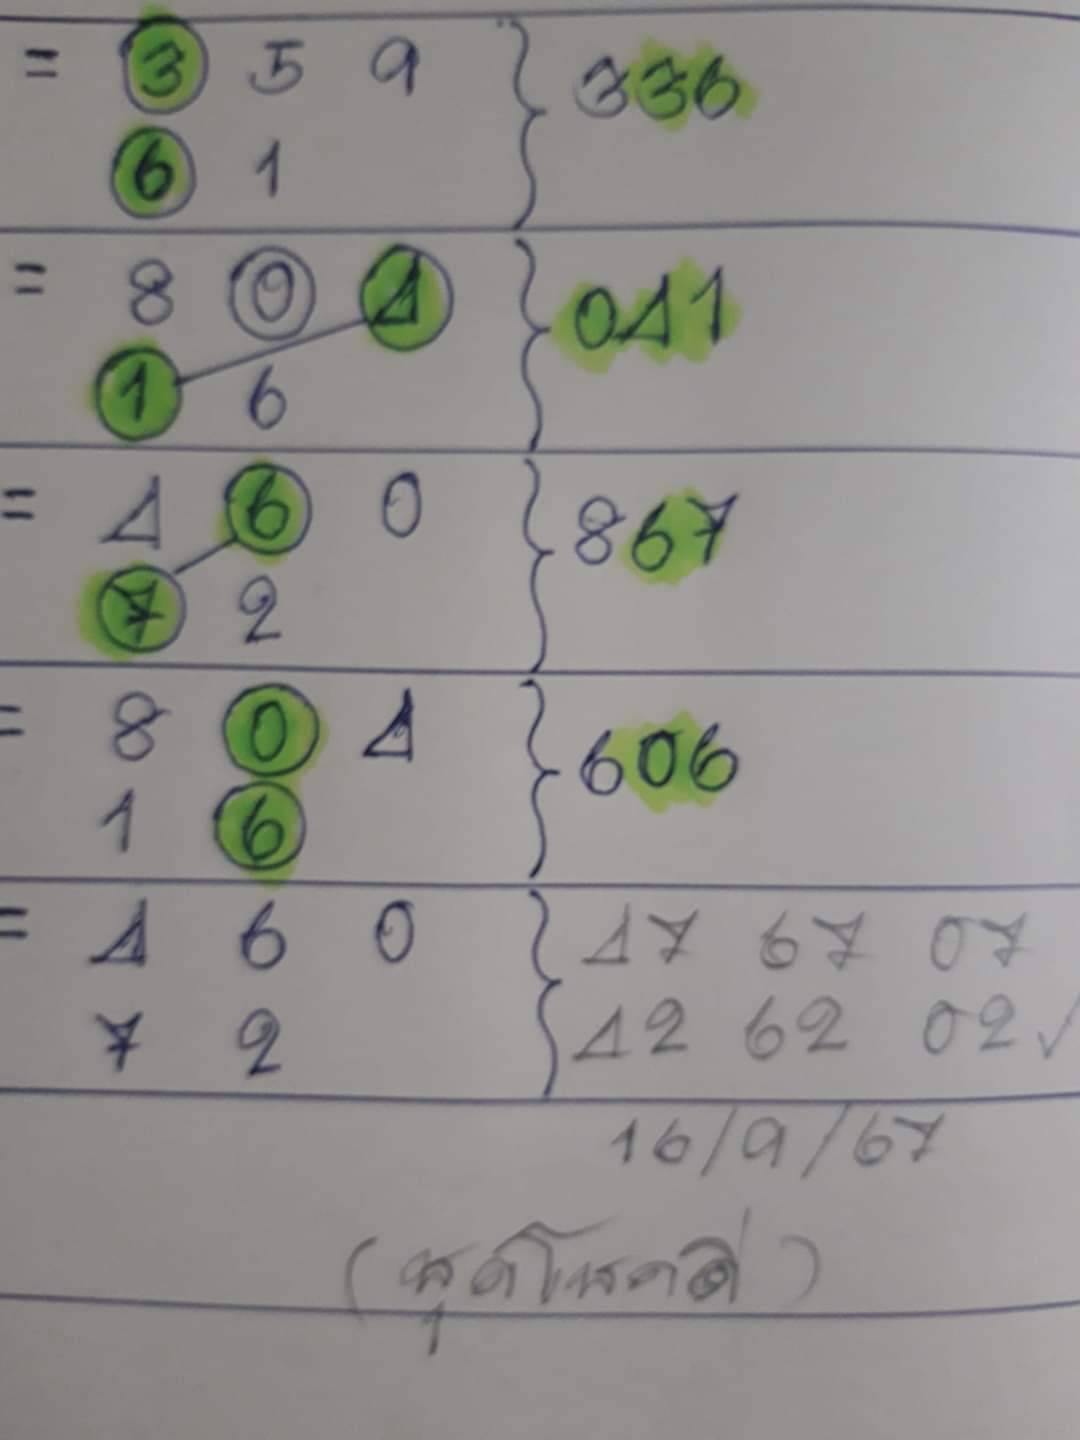 = 3 5 9 } 336
6 1
= 8 0 4 } 041
1 6
= 4 6 0 } 867
7 2
= 8 0 4 } 606
1 6
= 4 6 0 } 47 67 07
7 2 42 62 02 ✓
16/9/67
(ชุดโชคดี)